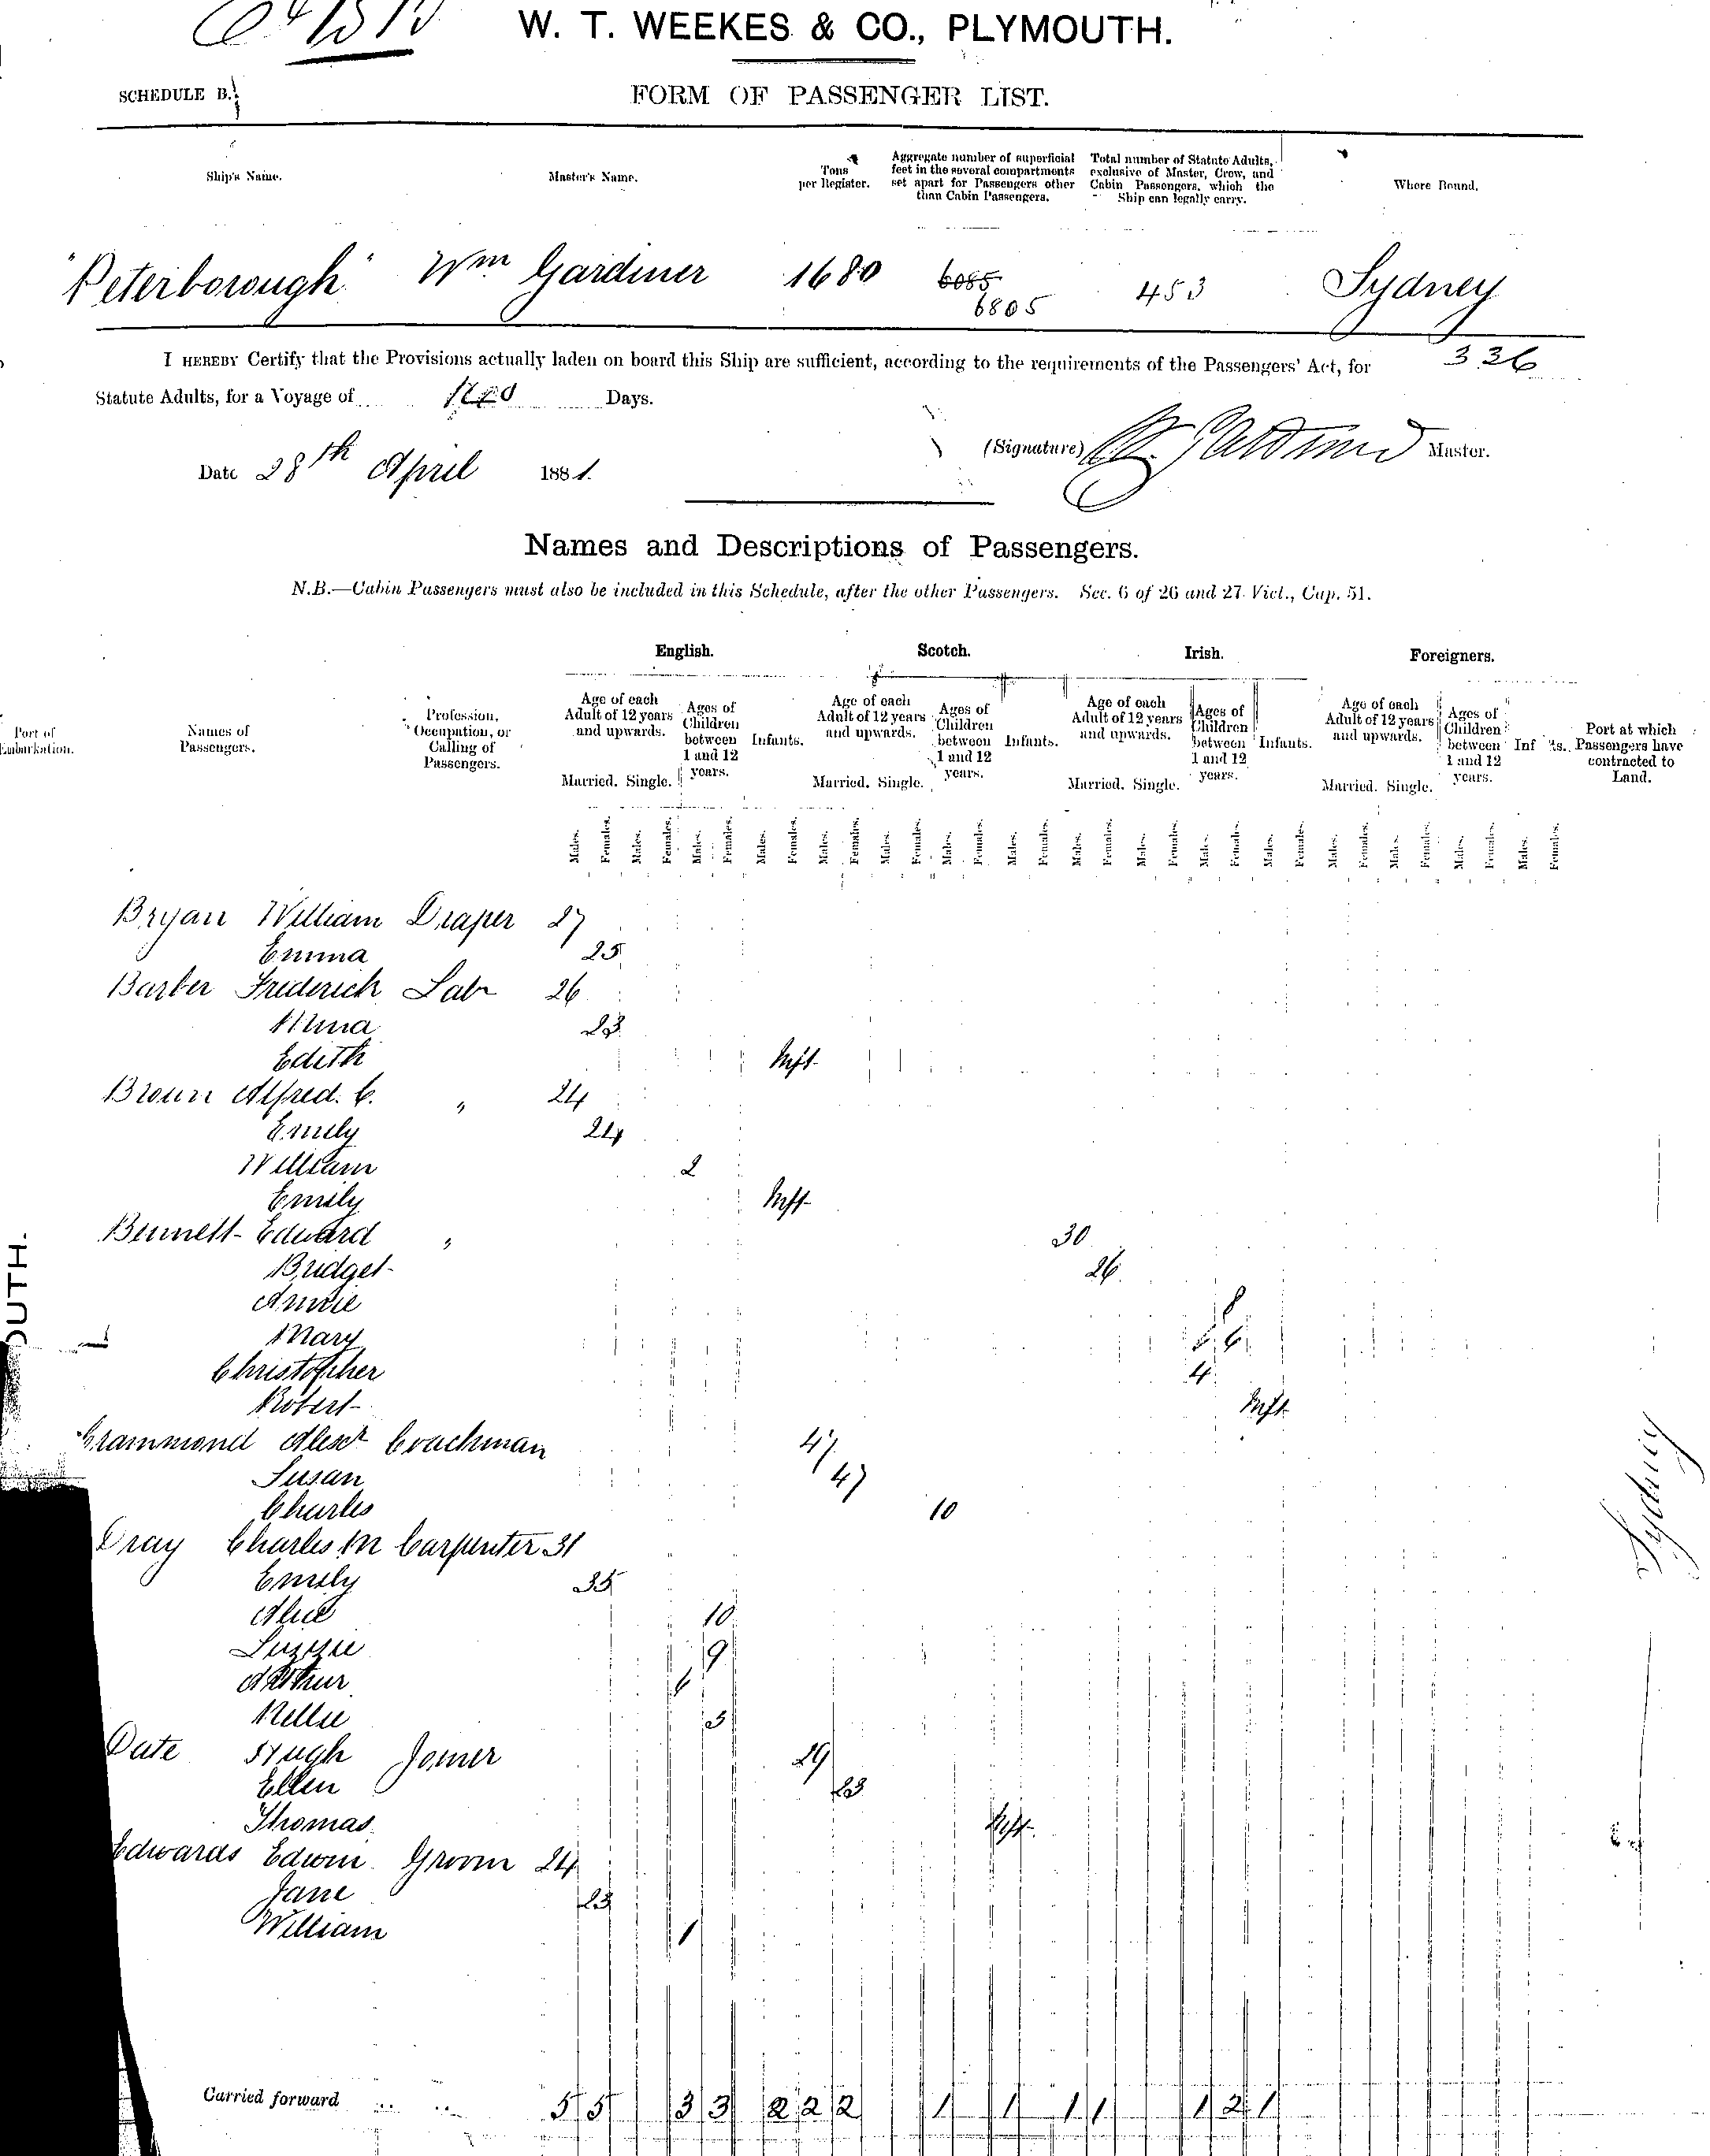 W. T. WEEKES & CO., PLYMOUTH.
SCHEDULE B.
FORM OF PASSENGER LIST.
Ship's Name. Master's Name. Tons per Register. Aggregate number of superficial feet in the several compartments set apart for Passengers other than Cabin Passengers. Total number of Statute Adults, exclusive of Master, Crew, and Cabin Passengers, which the Ship can legally carry. Where Bound.
"Peterborough" Wm Gardiner 1680 6085 6805 453 Sydney
I HEREBY Certify that the Provisions actually laden on board this Ship are sufficient, according to the requirements of the Passengers' Act, for 336
Statute Adults, for a Voyage of Days.
(Signature) Master.
Date 28th April 1881.
Names and Descriptions of Passengers.
N.B.—Cabin Passengers must also be included in this Schedule, after the other Passengers. Sec. 6 of 26 and 27 Vict., Cap. 51.
English. Scotch. Irish. Foreigners.
Port of Embarkation. Names of Passengers. Profession, Occupation, or Calling of Passengers. Age of each Adult of 12 years and upwards. Ages of Children between 1 and 12 years. Infants. Age of each Adult of 12 years and upwards. Ages of Children between 1 and 12 years. Infants. Age of each Adult of 12 years and upwards. Ages of Children between 1 and 12 years. Infants. Age of each Adult of 12 years and upwards. Ages of Children between 1 and 12 years. Inf ts. Port at which Passengers have contracted to Land.
Married. Single. Married. Single. Married. Single. Married. Single.
Males. Females. Males. Females. Males. Females. Males. Females. Males. Females. Males. Females. Males. Females. Males. Females. Males. Females. Males. Females. Males. Females. Males. Females. Males. Females. Males. Females. Males. Females. Males. Females.
Bryan William Draper 27
Emma 25
Barber Frederick Labr 26
Anna 23
Edith Inft
Brown Alfred. C. " 24
Emily 24
William 2
Emily Inft
Bennett Edward " 30
Bridget 26
Annie 8
Mary 6
Christopher 4
Robert Inft
Crammond Alexr Coachman 47
Susan 47
Charles 10
Dray Charles M Carpenter 31
Emily 35
Alice 10
Lizzie 9
Arthur 6
Nellie 3
Date Hugh Joiner 29
Ellen 23
Thomas Inft
Edwards Edwin Groom 24
Jane 23
William 1
Sydney
OUTH.
Carried forward 5 5 3 3 2 2 2 1 1 1 1 1 2 1